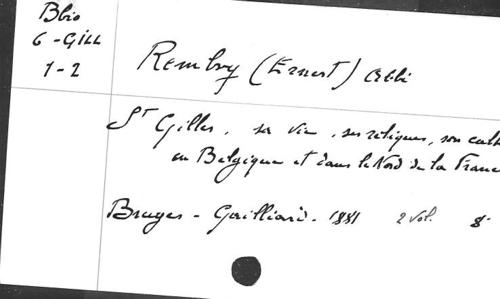 Bbio
6 - GILL
1-2
Rembry (Ernest) abbé
St Gilles, sa vie, ses reliques, son cult
en Belgique et dans le Nord de la France
Bruges - Gailliard. 1881 2 vol. 8°